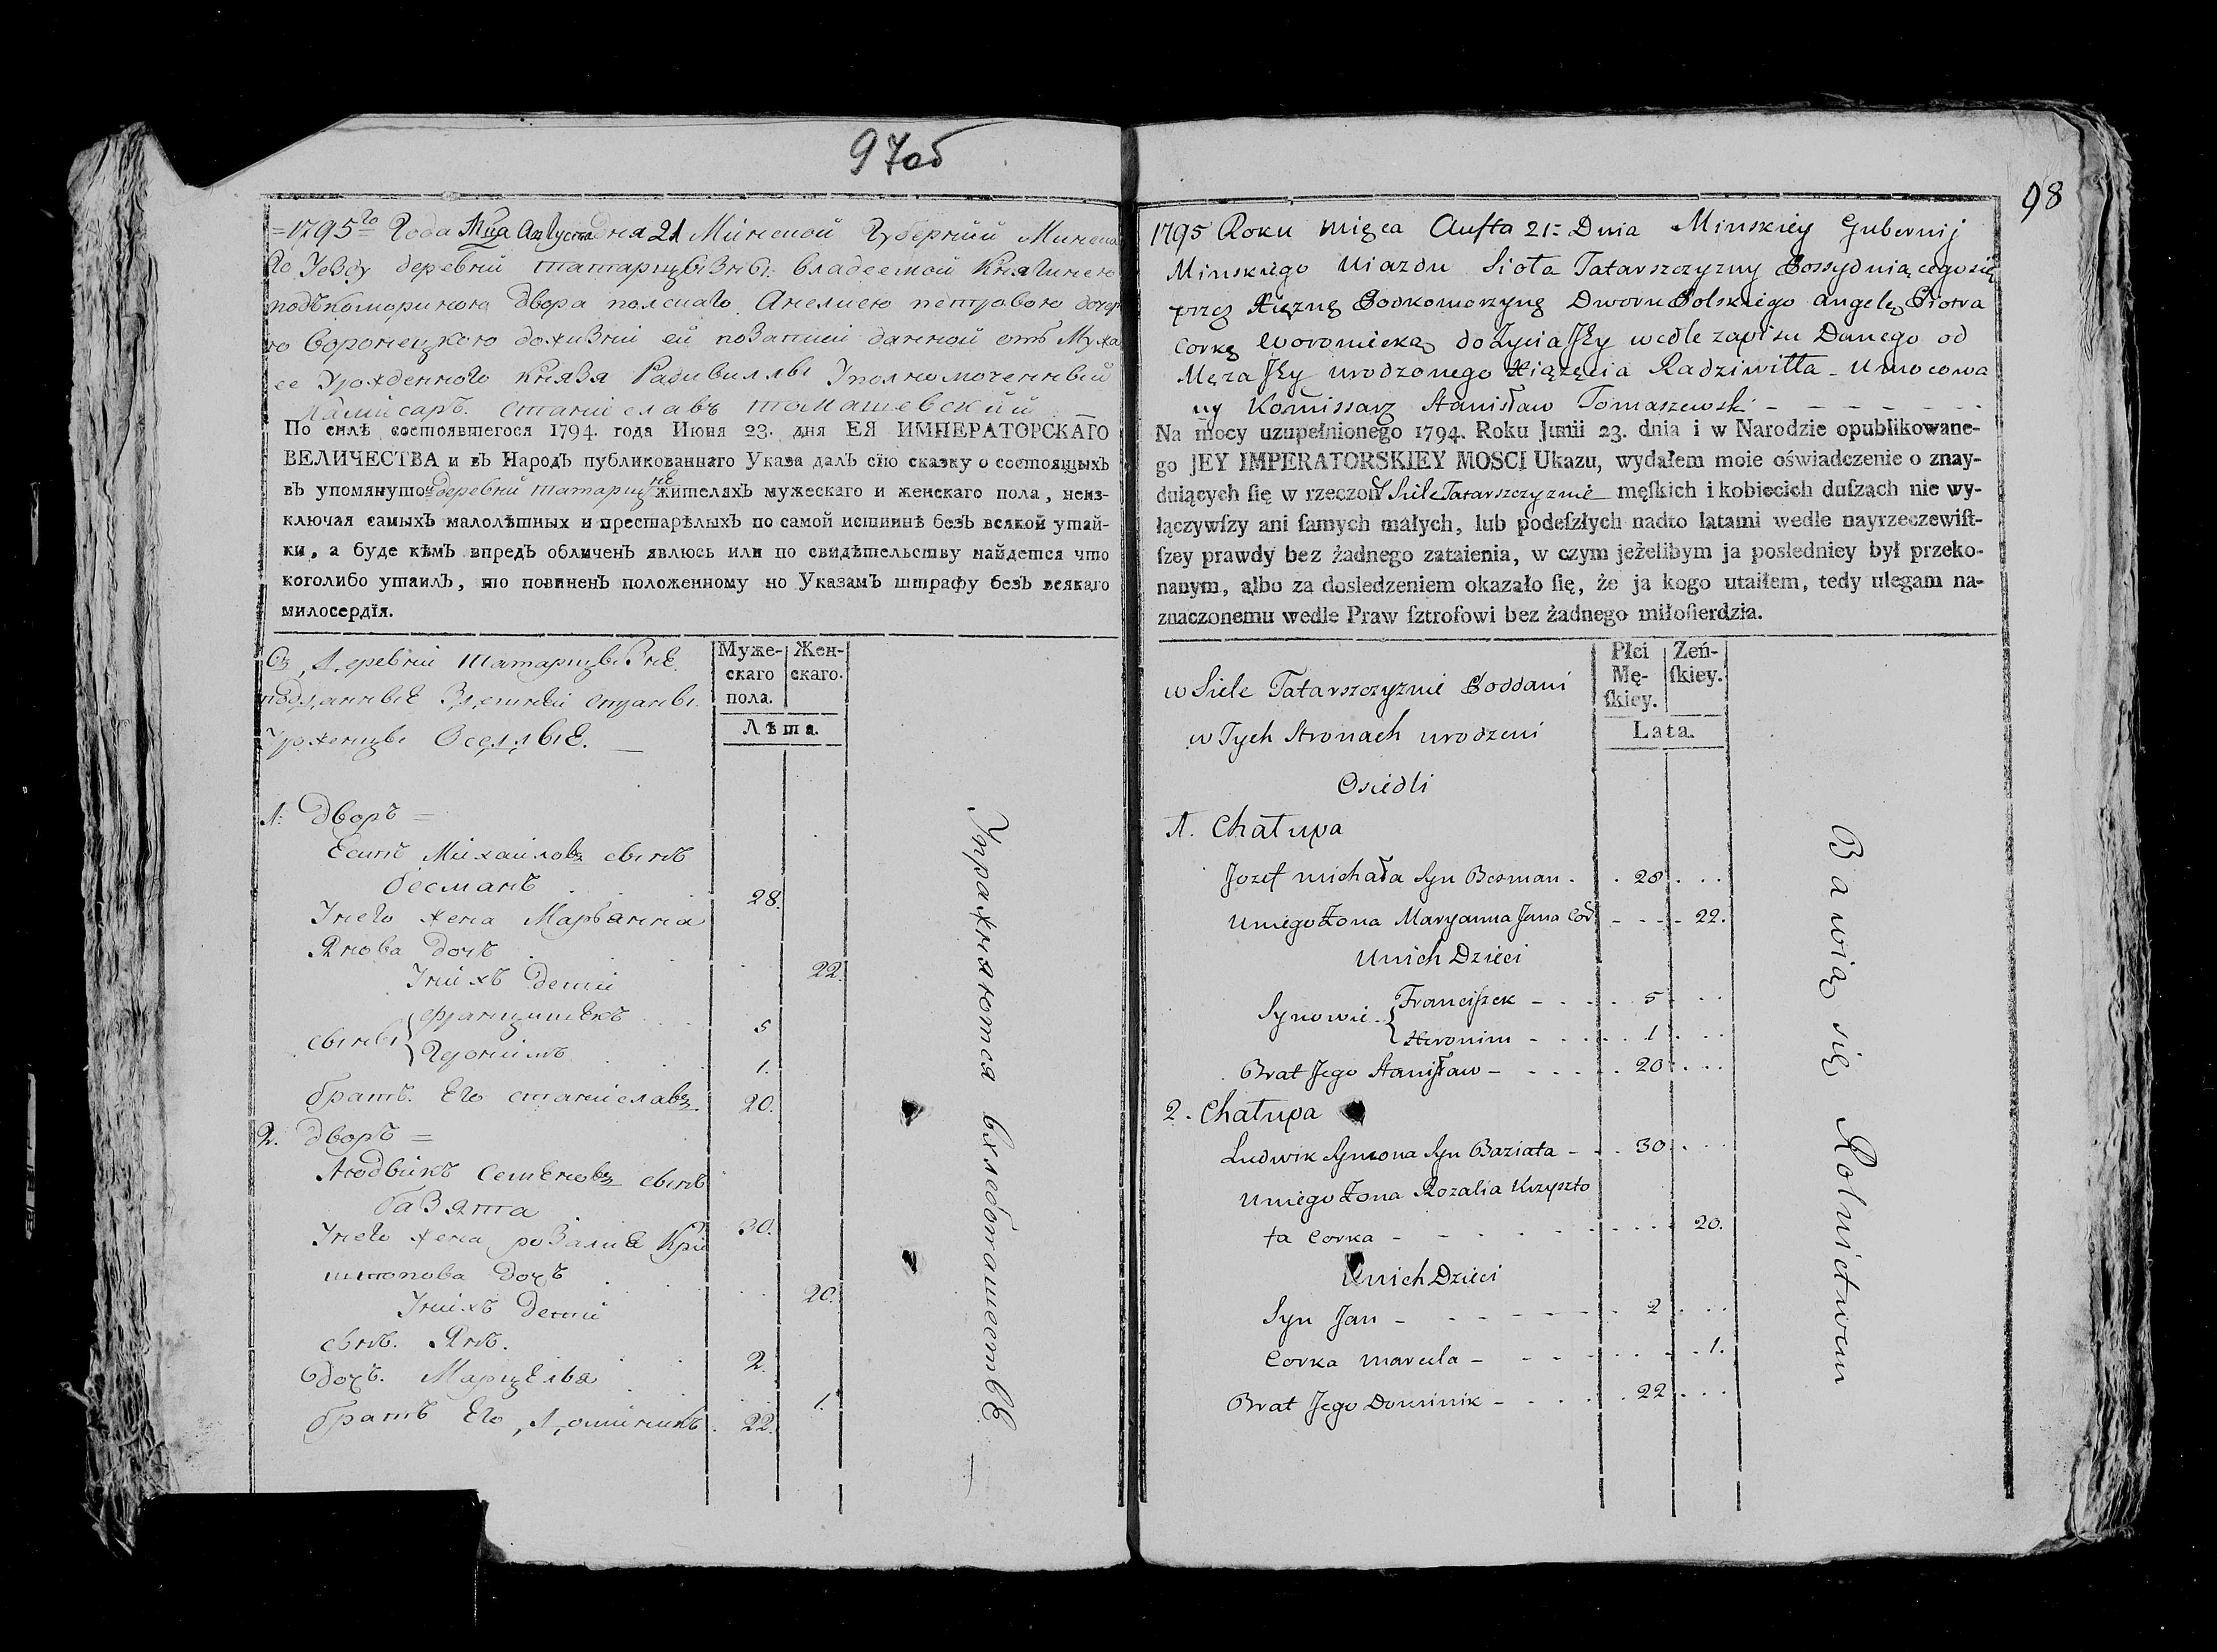 97об
=1795го Года Мца Августа Дня 21 Минской Губернии Минска
го Уезду деревни татарщызны владеемой Княгинею
подъкомориною двора полскаго Анелиею петровою дочер
ю воронецкою доживтни ей позаписи данной отъ Мужа
ее Урожденного князя Радивиллы Уполномоченный
камисаръ. станиславъ томашевский —
По силѣ состоявшегося 1794. года Июня 23. дня ЕЯ ИМПЕРАТОРСКАГО
ВЕЛИЧЕСТВА и въ Народъ публикованнаго Указа далъ сїю сказку о состоящыхъ
въ упомянутой деревни татарщызне жителяхъ мужескаго и женскаго пола, неиз-
ключая самыхъ малолѣтныхъ и престарѣлыхъ по самой истиннѣ безъ всякой утай-
ки, а буде кѣмъ впредь обличенъ явлюсь или по свидѣтельству найдется что
коголибо утаилъ, то повиненъ положенному по Указамъ штрафу безъ всякаго
милосердїя.
Въ Деревни татарщызне
подданные Здешней страны
Уроженцы Оселлые. —
Муже-
скаго
пола.
Жен-
скаго.
Лѣта.
1: дворъ =
Есипъ Михаиловъ сынъ
бесманъ . . . 28.
Унего жена Марьянна
Янова дочь . . . 22.
Унихъ дети
сыны { францишекъ . . 5
Героним . . 1.
братъ. Его станиславъ. 20.
2. дворъ =
Людвикъ семеновъ сынъ
базыта . 30.
Унего жена розалиа Кри
штопова дочь . . . 20.
Унихъ дети
сынъ. Янъ. . . . 2.
дочь. Марцелья . . . 1.
братъ Его Доминикъ . 22.
Упражняются вхлебопашестве —
98
1795 Roku mięca Aufta 21= Dnia Minskiey Gubernij
Minskiego Uiazdu Sioła Tatarszczyzny Possydniącego się
przez Xiężnę Podkomorzynę Dworu Polskiego Angelę Piotra
Corkę Woroniecką do życia Jey wedle zapisu Danego od
Męża Jey urodzonego Xiążęcia Radziwiłła - Umocowa
ny Kommissarz Stanisław Tomaszewski - - - - - - -
Na mocy uzupełnionego 1794. Roku Junii 23. dnia i w Narodzie opublikowane-
go JEY IMPERATORSKIEY MOSCI Ukazu, wydałem moie oświadczenie o znay-
duiących ſię w rzeczoney Siele Tatarszczyznie męſkich i kobiecich duſzach nie wy-
łączywſzy ani ſamych małych, lub podeſzłych nadto latami wedle nayrzeczewiſt-
ſzey prawdy bez żadnego zataienia, w czym jeżelibym ja posledniey był przeko-
nanym, albo za dosledzeniem okazało ſię, że ja kogo utaiłem, tedy ulegam na-
znaczonemu wedle Praw ſztrofowi bez żadnego miłoſierdzia.
w Siele Tatarszczyznie Poddani
w Tych Stronach urodzeni
Osiedli
Płci
Mę-
ſkiey.
Zeń-
ſkiey.
Lata.
1. Chałupa
Jozef michała Syn Besman - . 28 . . .
Uniego Żona Maryanna Jana Cor - - - - 22.
Unich Dzieci
Synowie { Franciſzek - . . . 5 . . .
Heronim - . . . . 1 . . .
Brat Jego Stanisław - - . . . . 20 . . .
2. Chałupa
Ludwik Symona Syn Baziata - . . 30 . . .
Uniego Żona Rozalia Krzyszto
fa Corka - - - . . . . . . . 20.
Unich Dzieci
Syn Jan - - - - - - - . 2 . . .
Corka marcela - - - - . . . . 1.
Brat Jego Dominik - - . . . . 22 . . .
Bawią się Rolnictwem